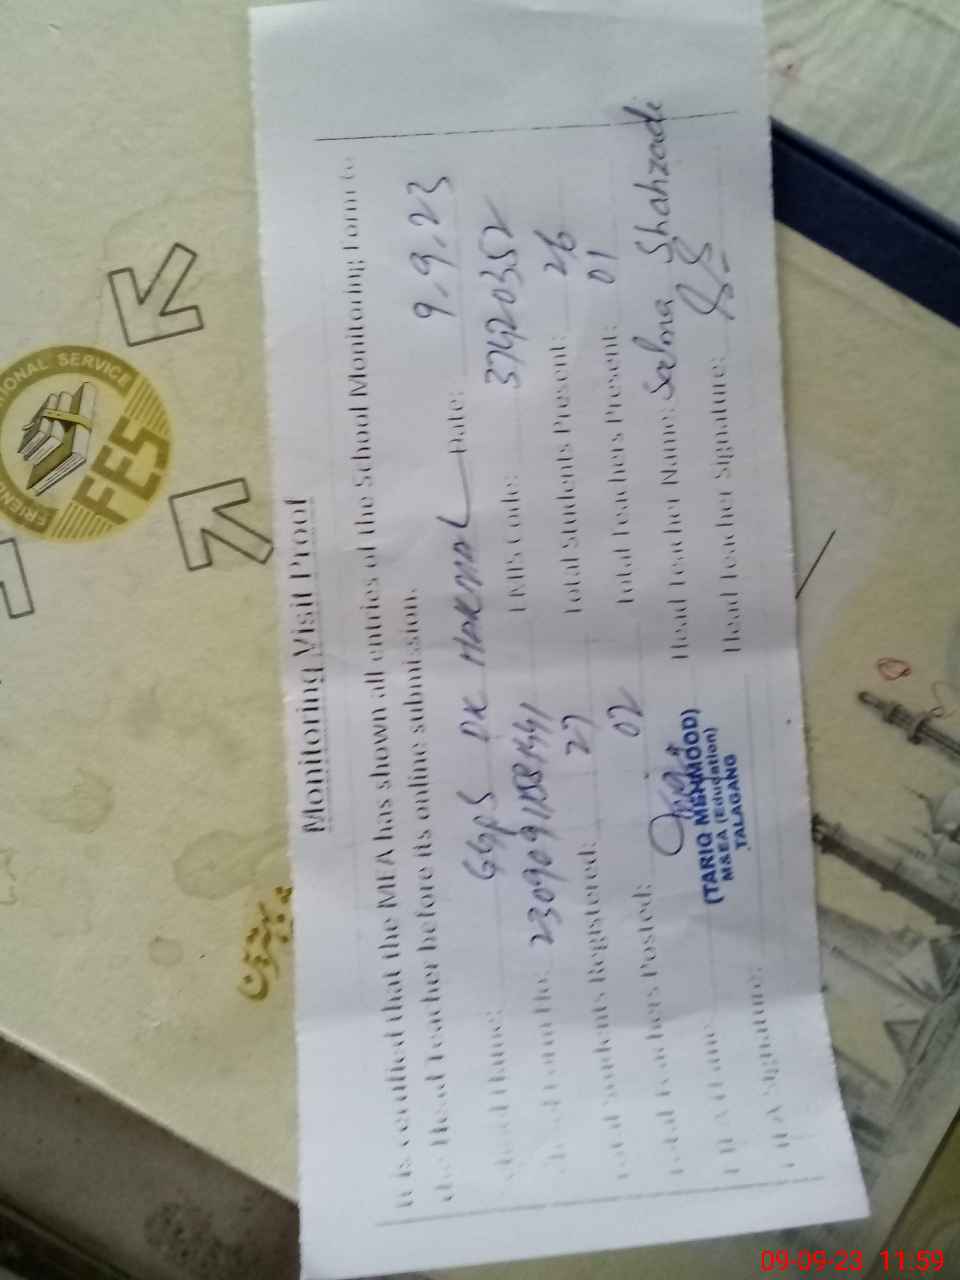 Monitoring Visit Proof
It is certified that the MEA has shown all entries of the School Monitoring Form to
the Head Teacher before its online submission.
School Name: GGPS DK HARMAL Date: 9.9.23
EMIS Code: 37420352
Total Students Registered: 27 Total Students Present: 26
Total Teachers Posted: 02 Total Teachers Present: 01
MEA Name: Head Teacher Name: Salma Shahzadi
(TARIQ MEHMOOD)
M&EA (Education)
TALAGANG
MEA Signature: Head Teacher Signature:
SERVICE
FES
FRIEND
09-09-23 11.59